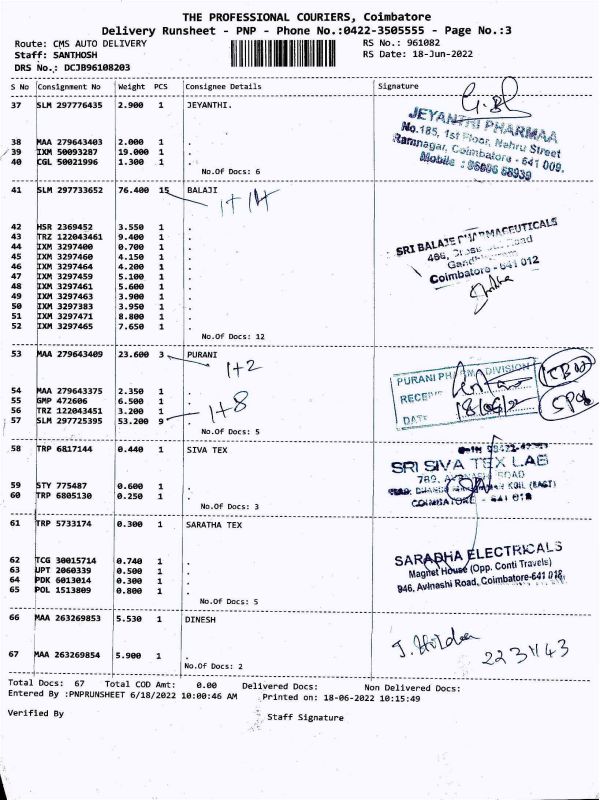 THE PROFESSIONAL COURIERS, Coimbatore
Delivery Runsheet - PNP - Phone No.:0422-3505555 - Page No.:3
Route: CMS AUTO DELIVERY RS No.: 961082
Staff: SANTHOSH RS Date: 18-Jun-2022
DRS No.: DCJB96108203
S No Consignment No Weight PCS Consignee Details Signature
37 SLM 297776435 2.900 1 JEYANTHI.
JEYANTHI PHARMAA
No.185, 1st Floor, Nehru Street
Ramnagar, Coimbatore - 641 009.
38 MAA 279643403 2.000 1 .
39 IXM 50093287 19.000 1 .
40 CGL 50021996 1.300 1 .
No.Of Docs: 6
41 SLM 297733652 76.400 15 BALAJI
1+14
SRI BALAJI PHARMACEUTICALS
Coimbatore - 641 012
42 HSR 2369452 3.550 1 .
43 TRZ 122043461 9.400 1 .
44 IXM 3297400 0.700 1 .
45 IXM 3297460 4.150 1 .
46 IXM 3297464 4.200 1 .
47 IXM 3297459 5.100 1 .
48 IXM 3297461 5.600 1 .
49 IXM 3297463 3.900 1 .
50 IXM 3297383 3.950 1 .
51 IXM 3297471 8.800 1 .
52 IXM 3297465 7.650 1 .
No.Of Docs: 12
53 MAA 279643409 23.600 3 PURANI
1+2
PURANI PHARMA DIVISION
DATE 18/06/2
54 MAA 279643375 2.350 1 .
55 GMP 472606 6.500 1 .
56 TRZ 122043451 3.200 1 .
57 SLM 297725395 53.200 9 .
1+8
No.Of Docs: 5
58 TRP 6817144 0.440 1 SIVA TEX
SRI SIVA TEX LAB
789, AVINASHI ROAD
59 STY 775487 0.600 1 .
60 TRP 6805130 0.250 1 .
No.Of Docs: 3
61 TRP 5733174 0.300 1 SARATHA TEX
SARADHA ELECTRICALS
Magnet House (Opp. Conti Travels)
946, Avinashi Road, Coimbatore-641 018.
62 TCG 30015714 0.740 1 .
63 UPT 2060339 0.500 1 .
64 PDK 6013014 0.300 1 .
65 POL 1513809 0.800 1 .
No.Of Docs: 5
66 MAA 263269853 5.530 1 DINESH
2231143
67 MAA 263269854 5.900 1 .
No.Of Docs: 2
Total Docs: 67 Total COD Amt: 0.00 Delivered Docs: Non Delivered Docs:
Entered By :PNPRUNSHEET 6/18/2022 10:00:46 AM Printed on: 18-06-2022 10:15:49
Verified By Staff Signature